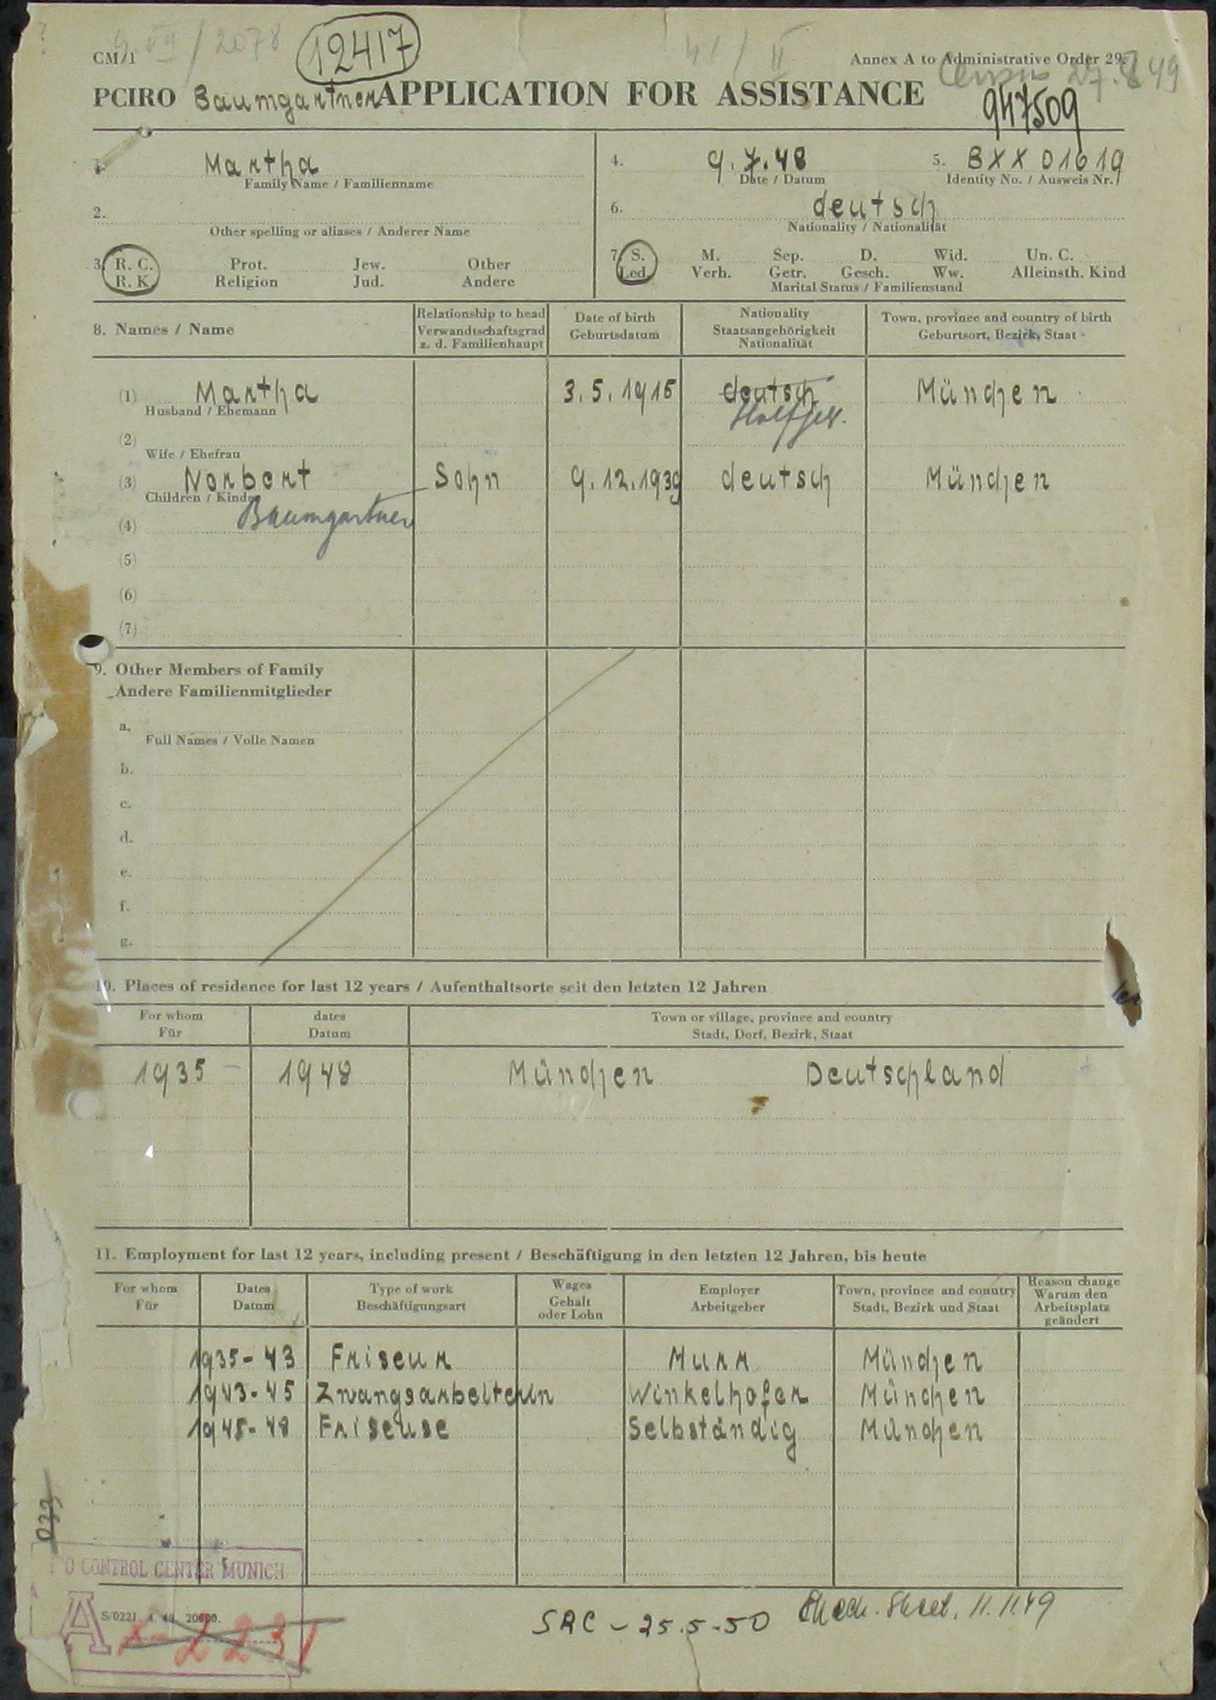 CM/1 VII / 2078 12417 41 / II Annex A to Administrative Order 29.
Census 27.8.49
PCIRO Baumgartner APPLICATION FOR ASSISTANCE 947509
1. Martha
Family Name / Familienname
4. 9.7.48
Date / Datum
5. BXX 01619
Identity No. / Ausweis Nr.
2.
Other spelling or aliases / Anderer Name
6. deutsch
Nationality / Nationalität
3. R. C. Prot. Jew. Other
R. K. Religion Jud. Andere
7. S. M. Sep. D. Wid. Un. C.
Led. Verh. Getr. Gesch. Ww. Alleinsth. Kind
Marital Status / Familienstand
8. Names / Name
Relationship to head
Verwandtschaftsgrad
z. d. Familienhaupt
Date of birth
Geburtsdatum
Nationality
Staatsangehörigkeit
Nationalität
Town, province and country of birth
Geburtsort, Bezirk, Staat
(1) Martha 3.5.1915 deutsch München
Husband / Ehemann
Halfjew.
(2)
Wife / Ehefrau
(3) Norbert Sohn 9.12.1939 deutsch München
Children / Kinder
(4) Baumgartner
(5)
(6)
(7)
9. Other Members of Family
Andere Familienmitglieder
a.
Full Names / Volle Namen
b.
c.
d.
e.
f.
g.
10. Places of residence for last 12 years / Aufenthaltsorte seit den letzten 12 Jahren
For whom
Für
dates
Datum
Town or village, province and country
Stadt, Dorf, Bezirk, Staat
1935 – 1948 München Deutschland
11. Employment for last 12 years, including present / Beschäftigung in den letzten 12 Jahren, bis heute
For whom
Für
Dates
Datum
Type of work
Beschäftigungsart
Wages
Gehalt
oder Lohn
Employer
Arbeitgeber
Town, province and country
Stadt, Bezirk und Staat
Reason change
Warum den
Arbeitsplatz
geändert
1935-43 Friseur Murr München
1943-45 Zwangsarbeiterin Winkelhofer München
1945-48 Friseuse Selbständig München
033
O CONTROL CENTER MUNICH
A
S/0221 4. 48. 20000.
2231
SRC - 25.5.50
Check. Sheet. 11.11.49